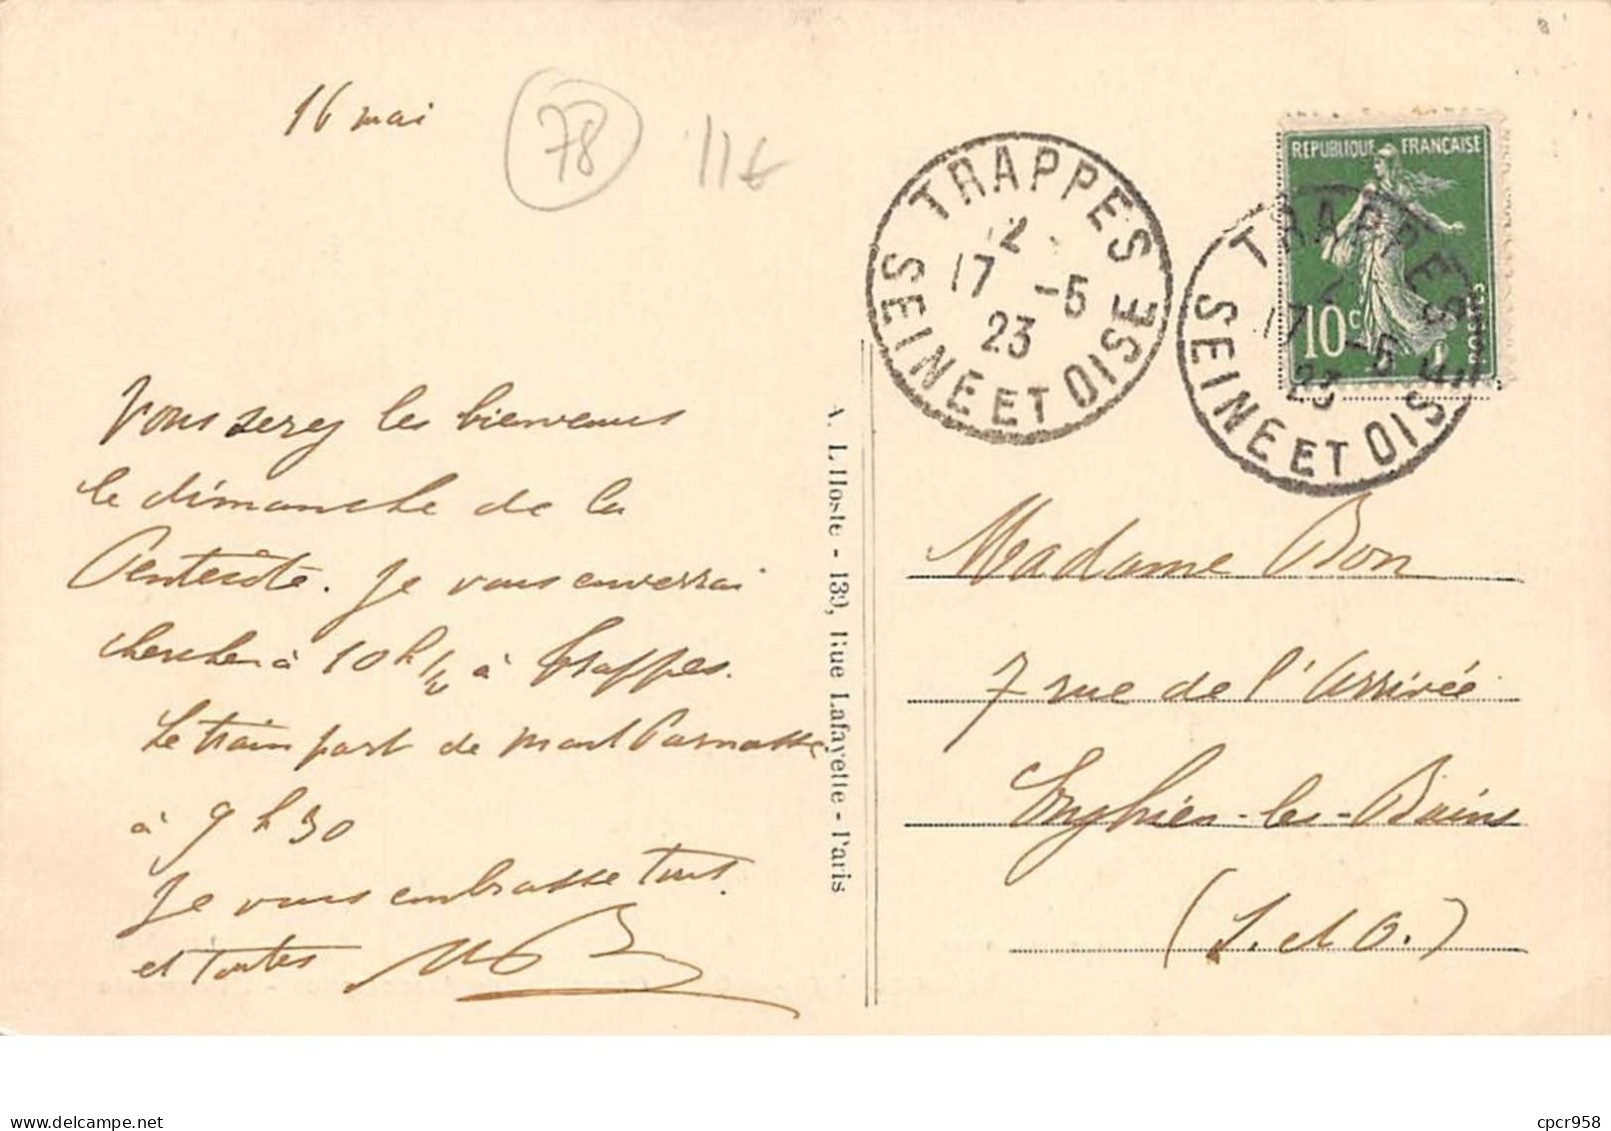 16 mai
78
11€
Vous serez les bienvenus
le dimanche de la
Pentecôte. Je vous enverrai
chercher à 10h 1/2 à Trappes.
Le train part de Montparnasse
à 9 h 30
Je vous embrasse tous
et toutes
A. L'Hoste - 139, Rue Lafayette - Paris
TRAPPES
12
17 -5
23
SEINE ET OISE
REPUBLIQUE FRANÇAISE
10c
POSTES
TRAPPES
17 -5
23
SEINE ET OISE
Madame Bon
7 rue de l'Arrivée
Enghien-les-Bains
(S. et O.)
cpcr958